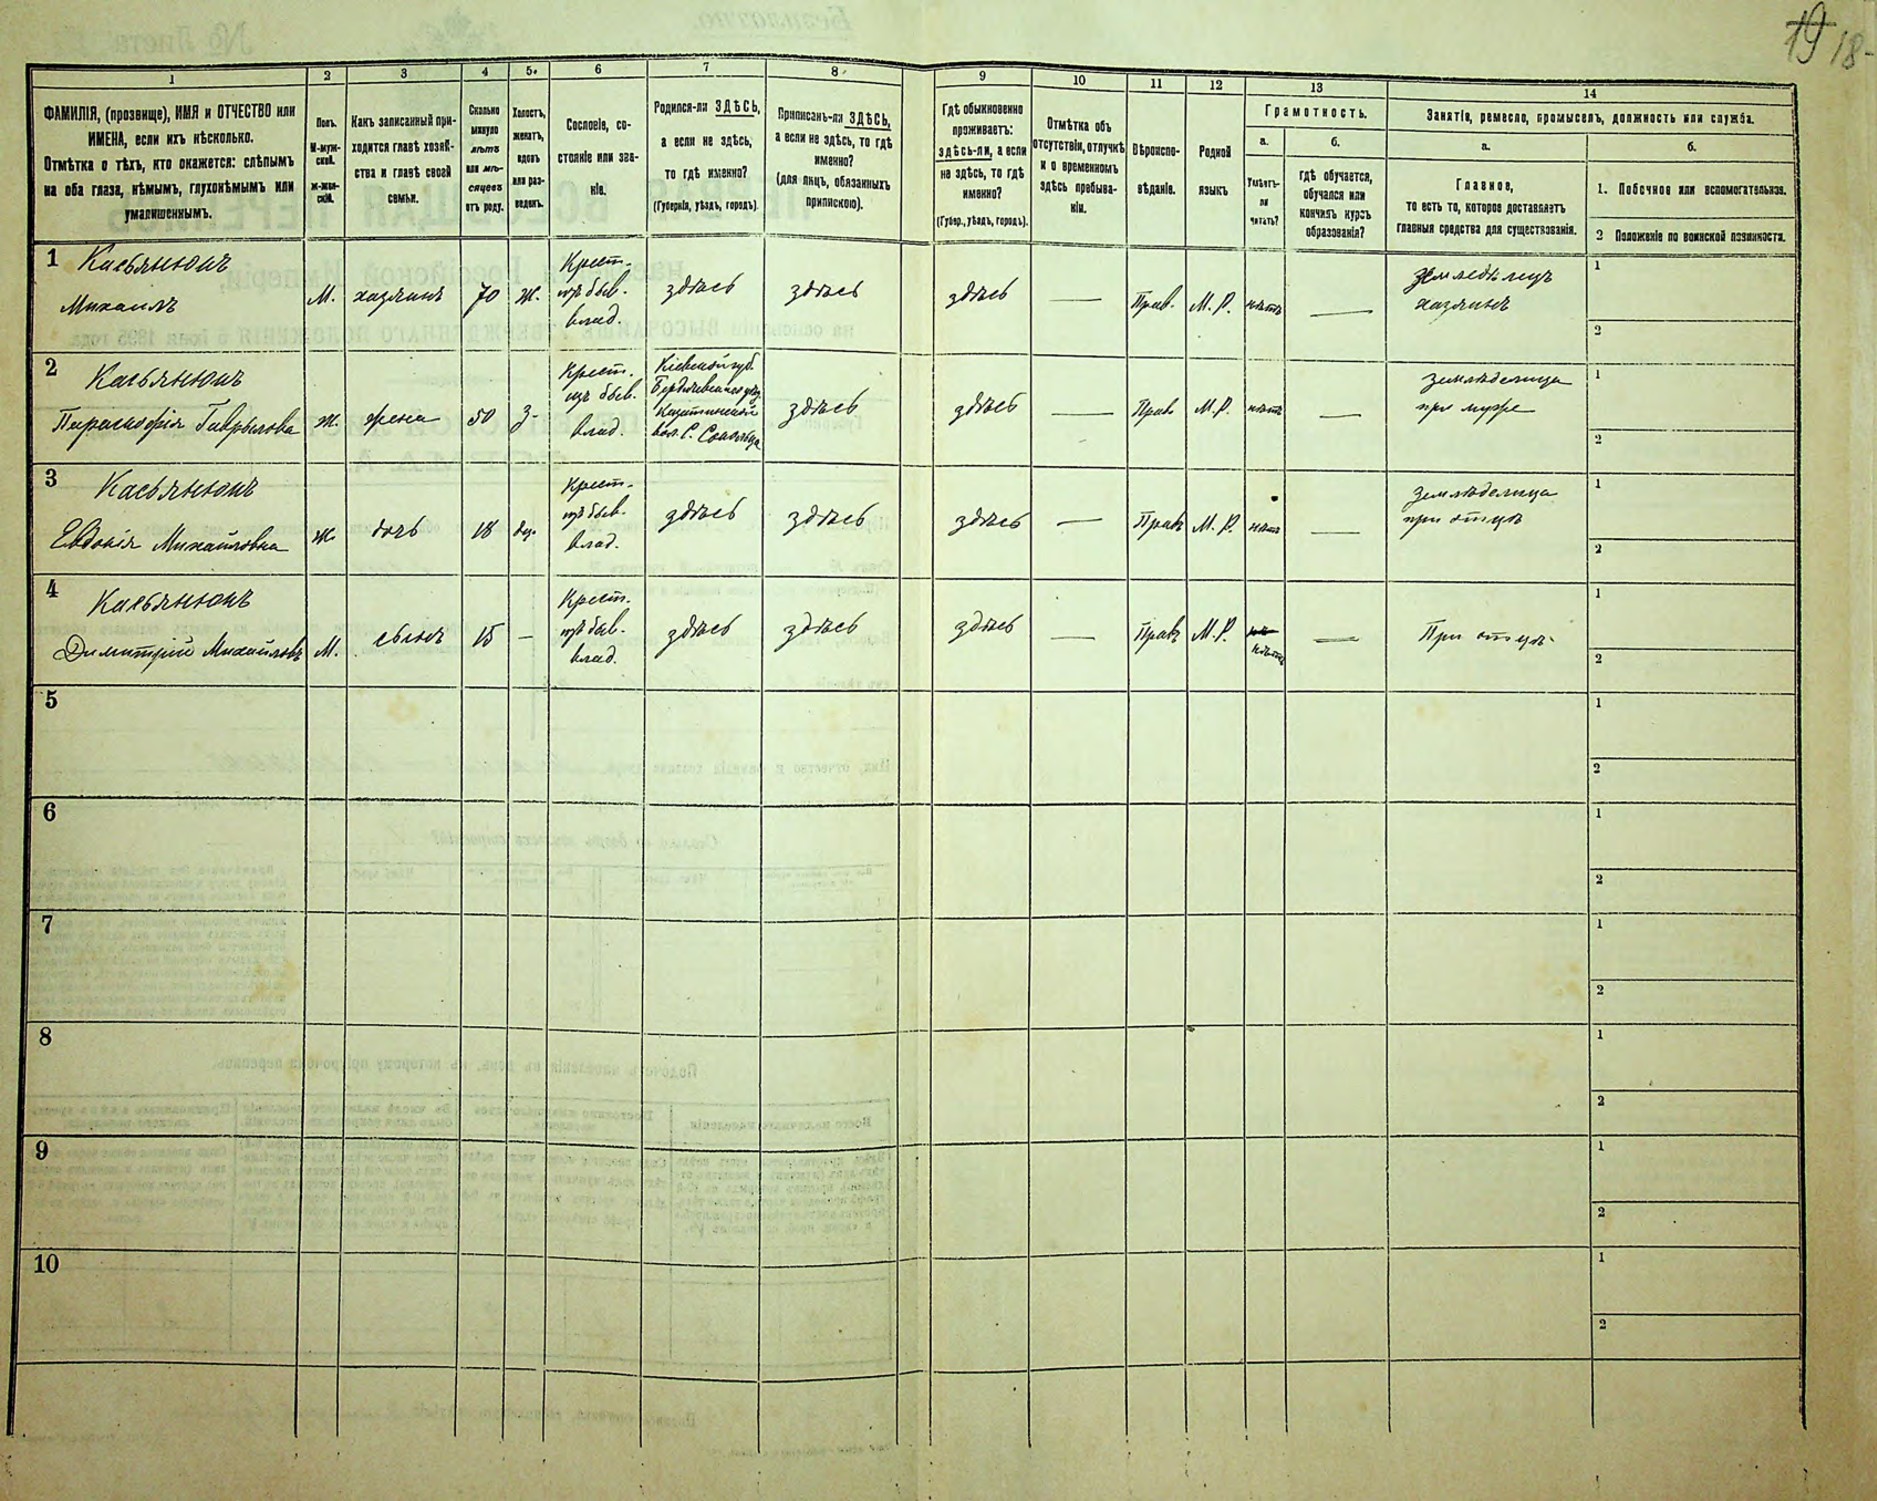 19 18-
1
2
3
4
5.
6
7
8
9
10
11
12
13
14
ФАМИЛІЯ, (прозвище), ИМЯ и ОТЧЕСТВО или
ИМЕНА, если ихъ нѣсколько.
Отмѣтка о тѣхъ, кто окажется: слѣпымъ
на оба глаза, нѣмымъ, глухонѣмымъ или
умалишеннымъ.
Полъ.
М-муж-
ской.
ж-жен-
скій.
Какъ записанный при-
ходится главѣ хозяй-
ства и главѣ своей
семьи.
Сколько
минуло
лѣтъ
или мѣ-
сяцевъ
отъ роду.
Холостъ,
женатъ,
вдовъ
или раз-
веденъ.
Сословіе, со-
стояніе или зва-
ніе.
Родился-ли ЗДѢСЬ,
а если не здѣсь,
то гдѣ именно?
(Губернія, уѣздъ, городъ).
Приписанъ-ли ЗДѢСЬ,
а если не здѣсь, то гдѣ
именно?
(для лицъ, обязанныхъ
припискою).
Гдѣ обыкновенно
проживаетъ:
здѣсь-ли, а если
не здѣсь, то гдѣ
именно?
(Губер., уѣздъ, городъ).
Отмѣтка объ
отсутствіи, отлучкѣ
и о временномъ
здѣсь пребыва-
ніи.
Вѣроиспо-
вѣданіе.
Родной
языкъ
Грамотность.
а.
Умѣетъ-
ли
читать?
б.
гдѣ обучается,
обучался или
кончилъ курсъ
образованія?
Занятіе, ремесло, промыселъ, должность или служба.
а.
Главное,
то есть то, которое доставляетъ
главныя средства для существованія.
б.
1. Побочное или вспомогательное.
2 Положеніе по воинской повинности.
1 Касьянюкъ
Михаилъ
М.
хазяинъ
70
ж.
Крест.
изъ быв.
влад.
здѣсь
здѣсь
здѣсь
—
Прав.
М. Р.
нѣтъ
—
Земледѣлецъ
хазяинъ
1
2
2 Касьянюкъ
Параскофія Гаврылова
ж.
жена
50
З-
Крест.
изъ быв.
влад.
Кіевской губ.
Бердичевскаго уѣз.
Казатинской
вол. С. Сокольца
здѣсь
здѣсь
—
Прав
М. Р.
нѣтъ
—
Землѣделица
при мужѣ
1
2
3 Касьянюкъ
Евдокія Михайловна
ж.
дочь
18
дѣ.
Крест.
изъ быв.
влад.
здѣсь
здѣсь
здѣсь
—
Прав
М. Р.
нѣтъ
—
Землѣделица
при отцѣ
1
2
4 Касьянюкъ
Димитрій Михайловъ
М.
сынъ
15
—
Крест.
изъ быв.
влад.
здѣсь
здѣсь
здѣсь
—
Прав
М. Р.
нѣтъ
—
При отцѣ
1
2
5
1
2
6
1
2
7
1
2
8
1
2
9
1
2
10
1
2